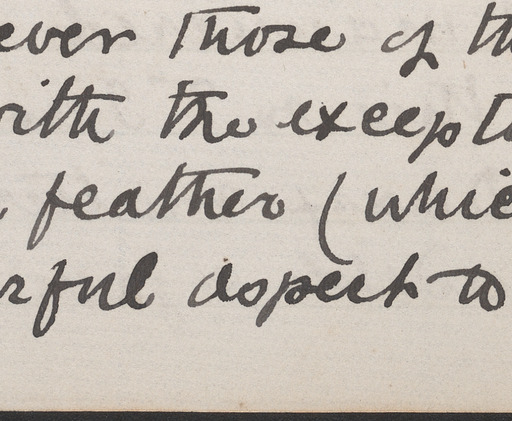 ever those of th
with the except
feather (whic
rful aspect to